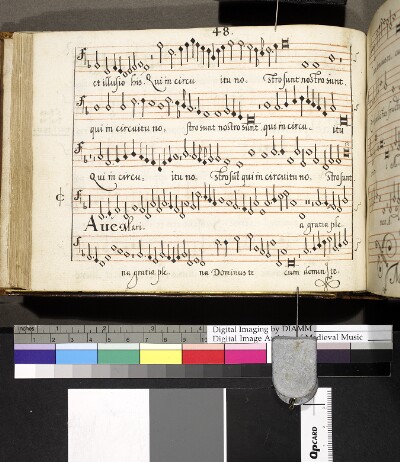 48.
et illusio his. Qui in circu itu no. stro sunt nostro sunt.
qui in circuitu no. stro sunt nostro sunt. qui in circu. itu
Qui in circu. itu no. stro sūt qui in circuitu no. stro sunt
Aue a gratia ple
na gratia ple. na Dominus te cum te.
inches 1 2
Digital Imaging by DIAMM
Digital Image Medieval Music
QPCARD